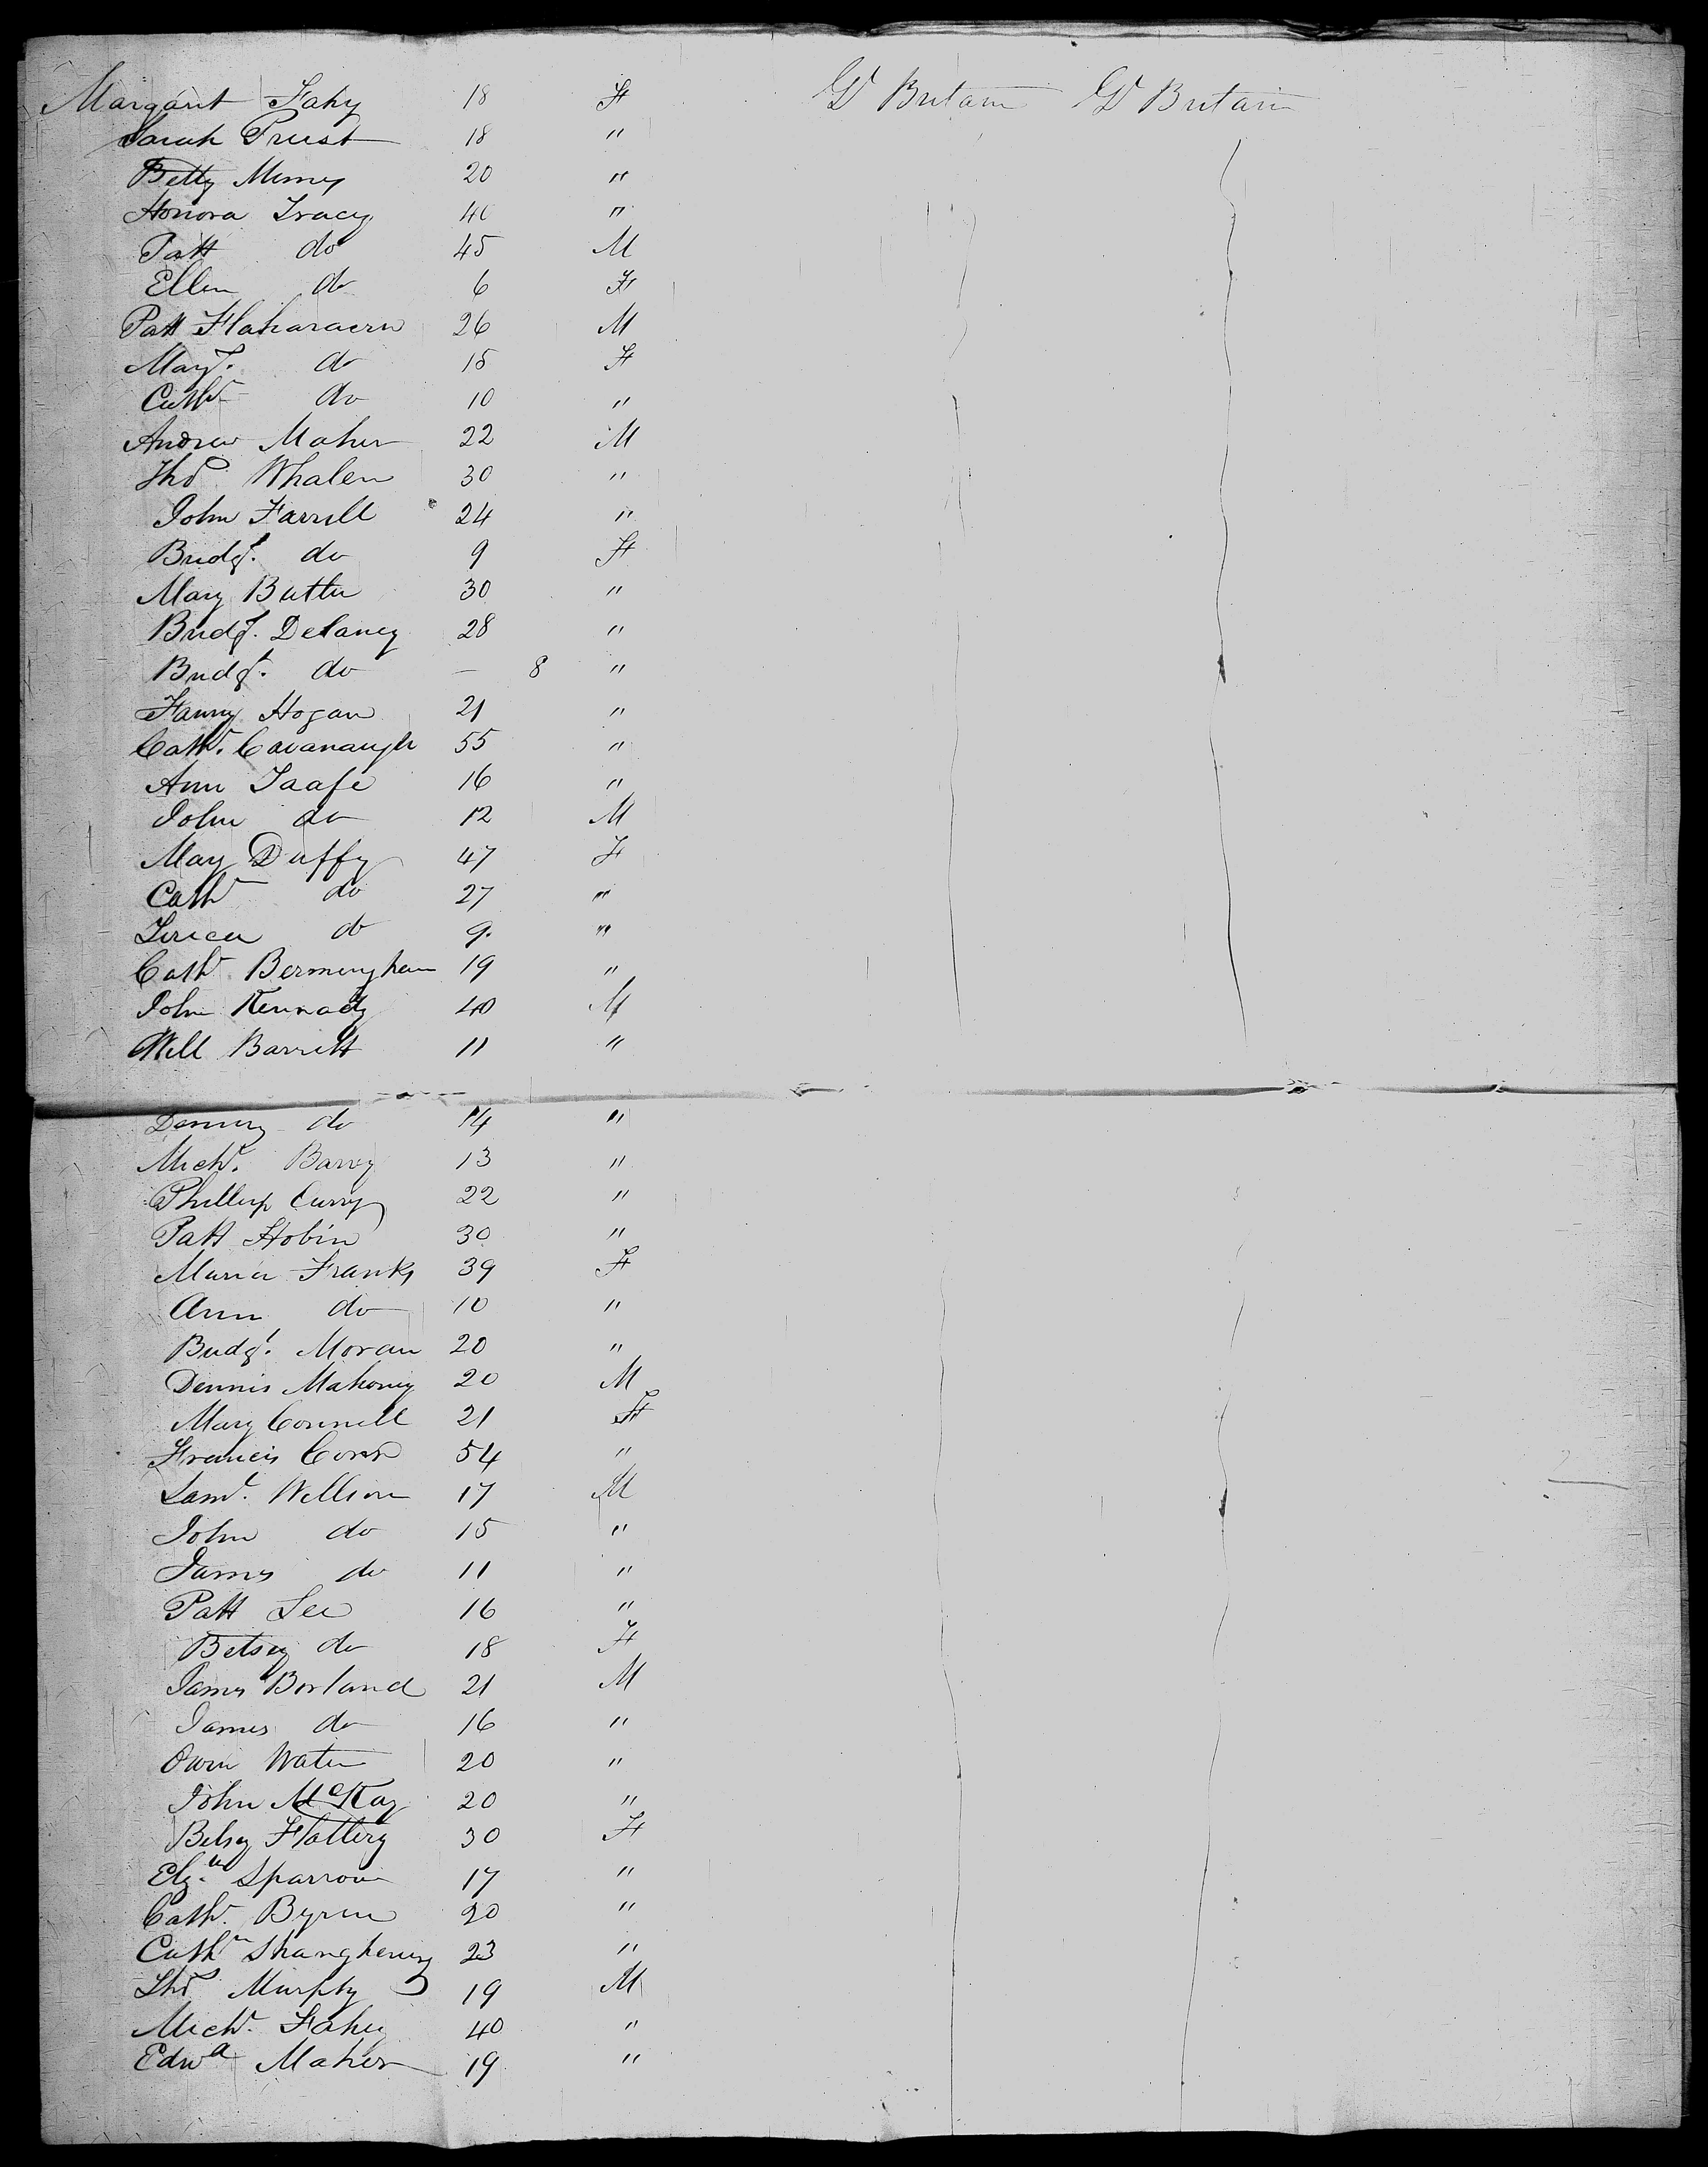 Margaret Fahy 18 F Gt Britain Gt Britain
Sarah Priest 18 "
Betty Mimey 20 "
Honora Tracy 40 "
Patt do 45 M
Ellen do 6 F
Patt Flaharaern 26 M
Margt. do 15 F
Cathe do 10 "
Andrew Maher 22 M
Thos. Whalen 30 "
John Farrell 24 "
Bridgt. do 9 F
Mary Butler 30 "
Bridgt. Delaney 28 "
Bridgt. do — 8 "
Fanny Hogan 21 "
Cathe. Cavanaugh 55 "
Ann Taafe 16 "
John do 12 M
May Duffy 47 F
Cathe do 27 "
do 9. "
Cathe. Bermingham 19 "
John Kennady 40 M
Will Barrett 11 "
do 14 "
Michl. Barry 13 "
Phillip Curry 22 "
Patt Hobin 30 "
Maria Franks 39 F
Ann do 10 "
Bridgt. Moran 20 "
Dennis Mahoney 20 M
Mary Connell 21 F
Francis Corr 54 "
Saml. Wellson 17 M
John do 15 "
James do 11 "
Patt Lee 16 "
Betsey do 18 F
James Borland 21 M
James do 16 "
Owen Water 20 "
John McKay 20 "
Betsy Flattery 30 F
Elz.th Sparrow 17 "
Cathe. Byrne 20 "
Cathe Shanghenesy 23 "
Thos Murphy 19 M
Michl. Fahey 40 "
Edwd Maher 19 "